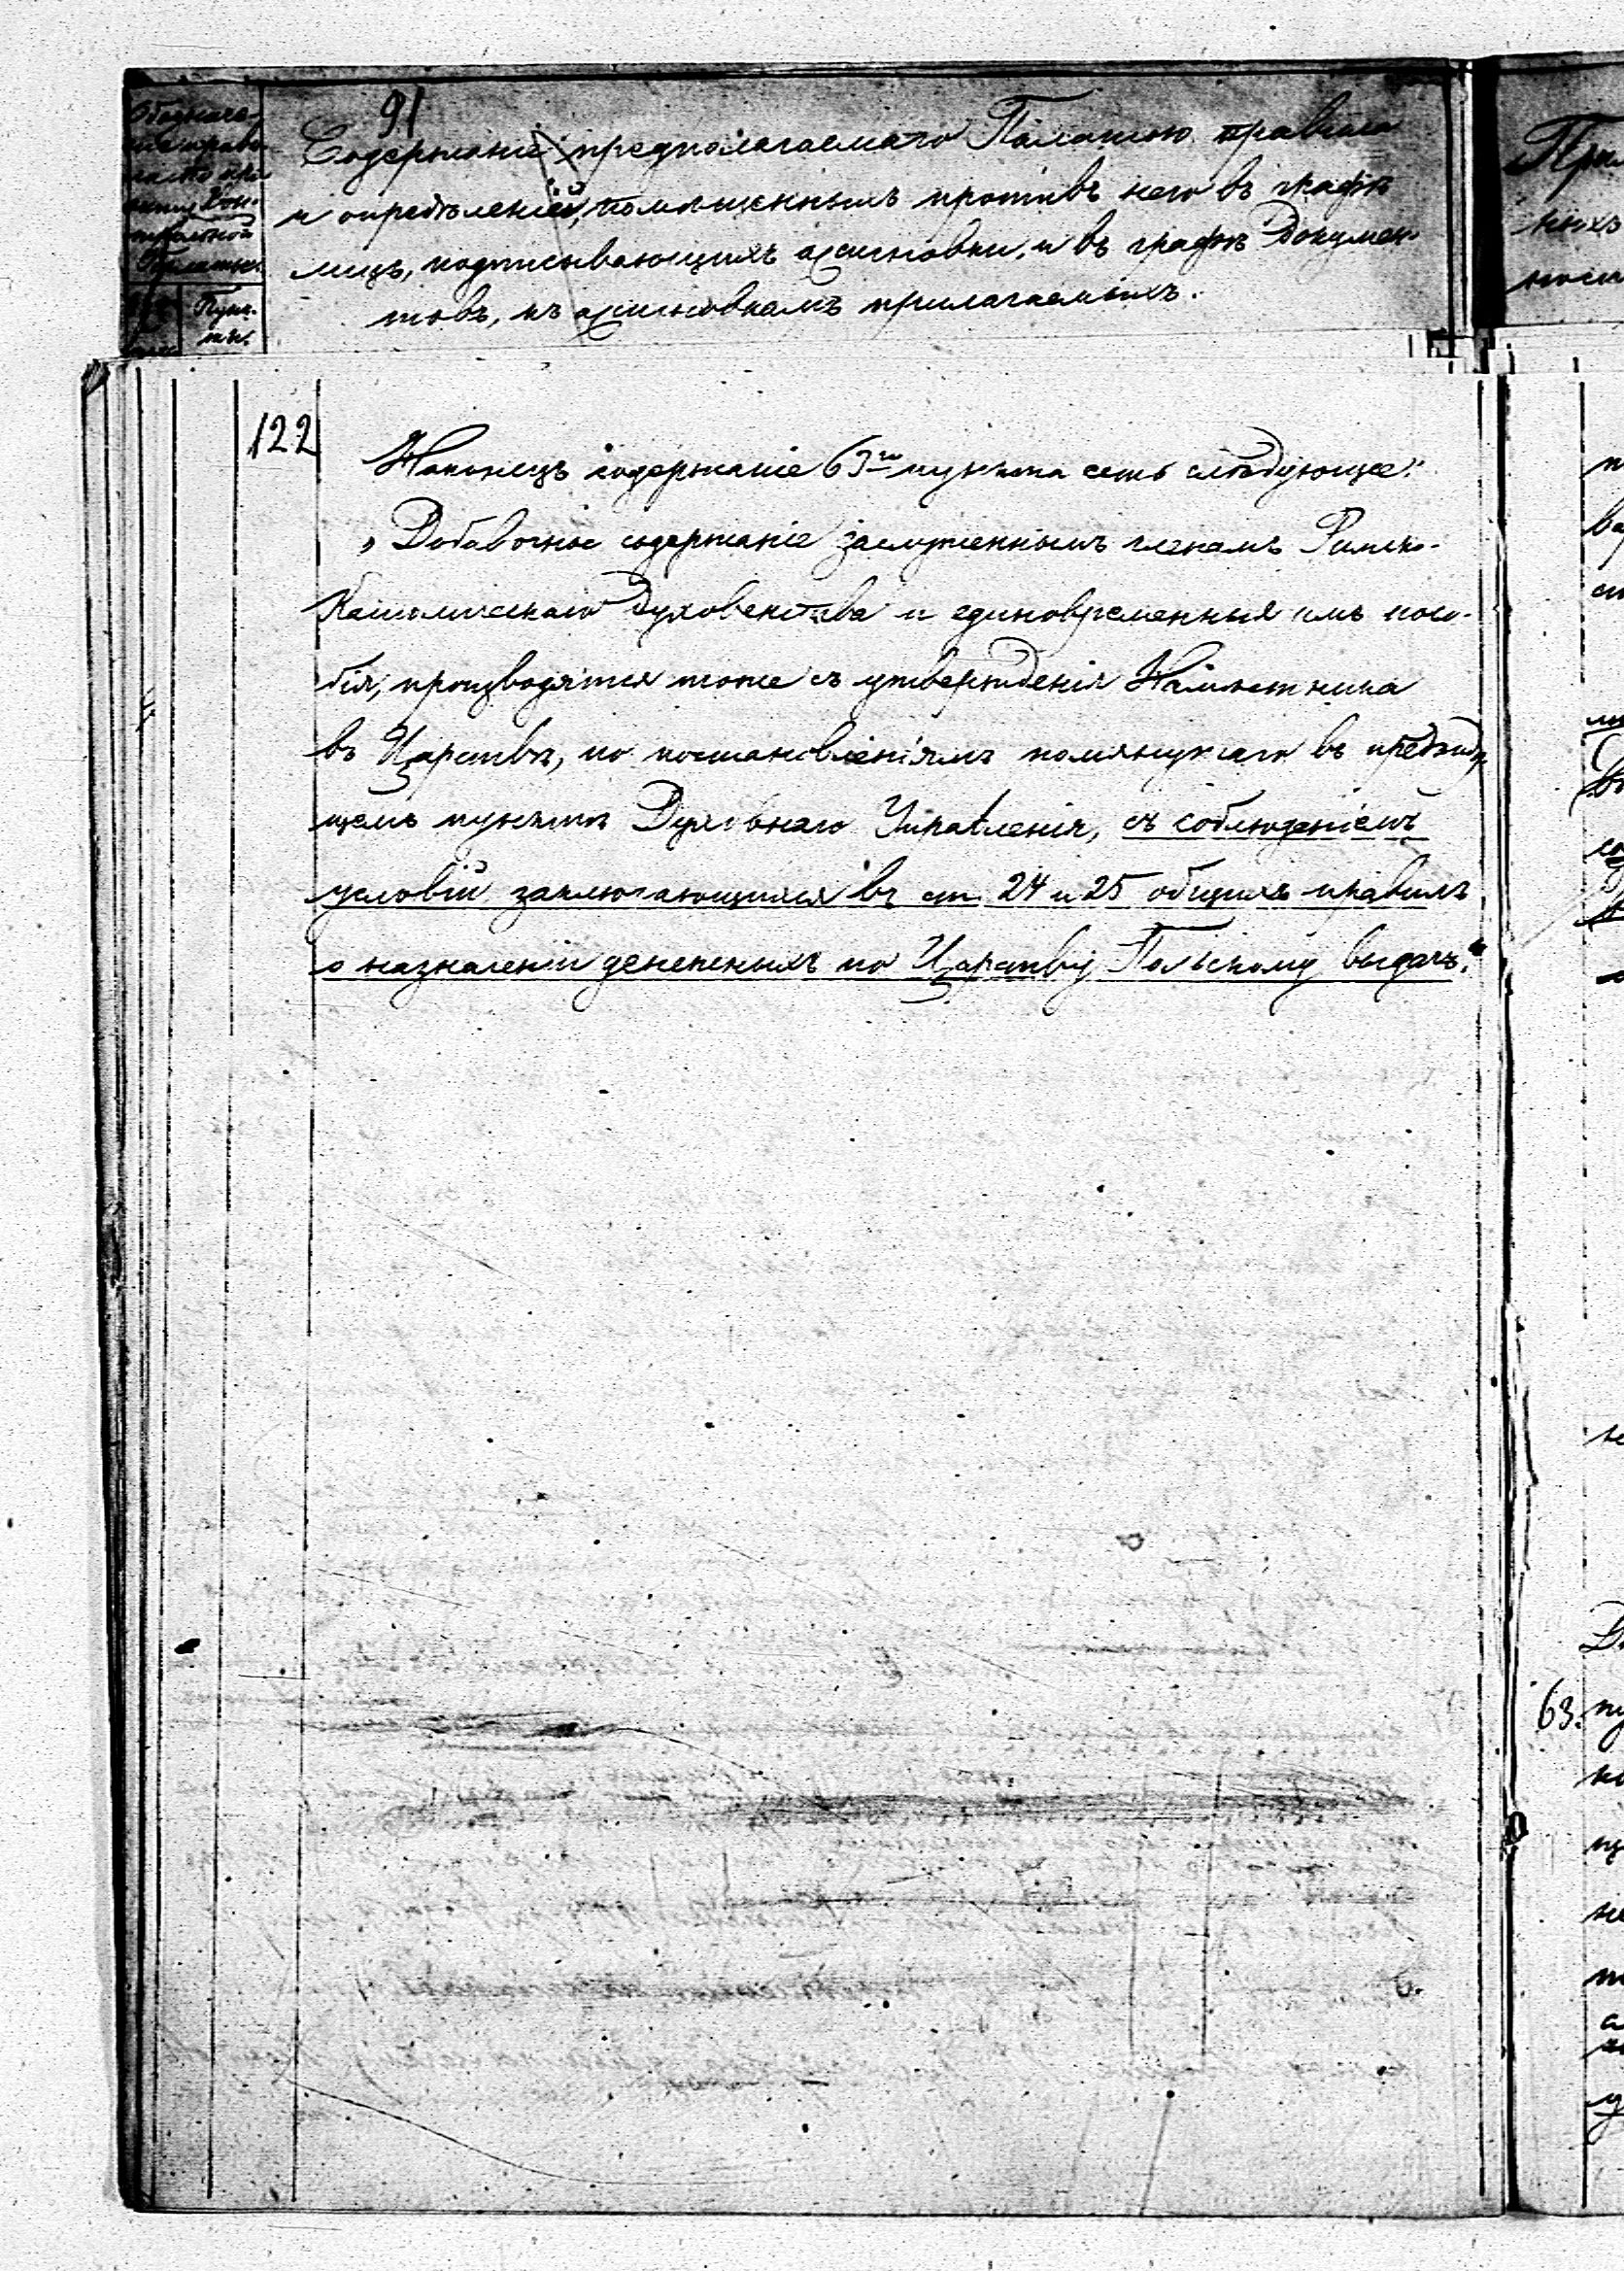 91
Содержаніе предполагаемаго Палатою правила
и опредѣленій, помѣщенныхъ противъ него въ графѣ
лицъ, подписывающихъ ассигновки, и въ графѣ докумен-
товъ, къ ассигновкамъ прилагаемыхъ.
Пунк-
ты.
122
Наконецъ содержаніе 63го пункта есть слѣдующее:
„Добавочное содержаніе заслуженнымъ членамъ Римско-
Католическаго Духовенства и единовременныя имъ посо-
бія, производятся тоже съ утвержденія Намѣстника
въ Царствѣ, по постановленіямъ помянутаго въ предъиду-
щемъ пунктѣ Духовнаго Управленія, съ соблюденіемъ
условій заключающихся въ ст. 24 и 25 общихъ правилъ
о назначеніи денежныхъ по Царству Польскому выдачъ.“
63.